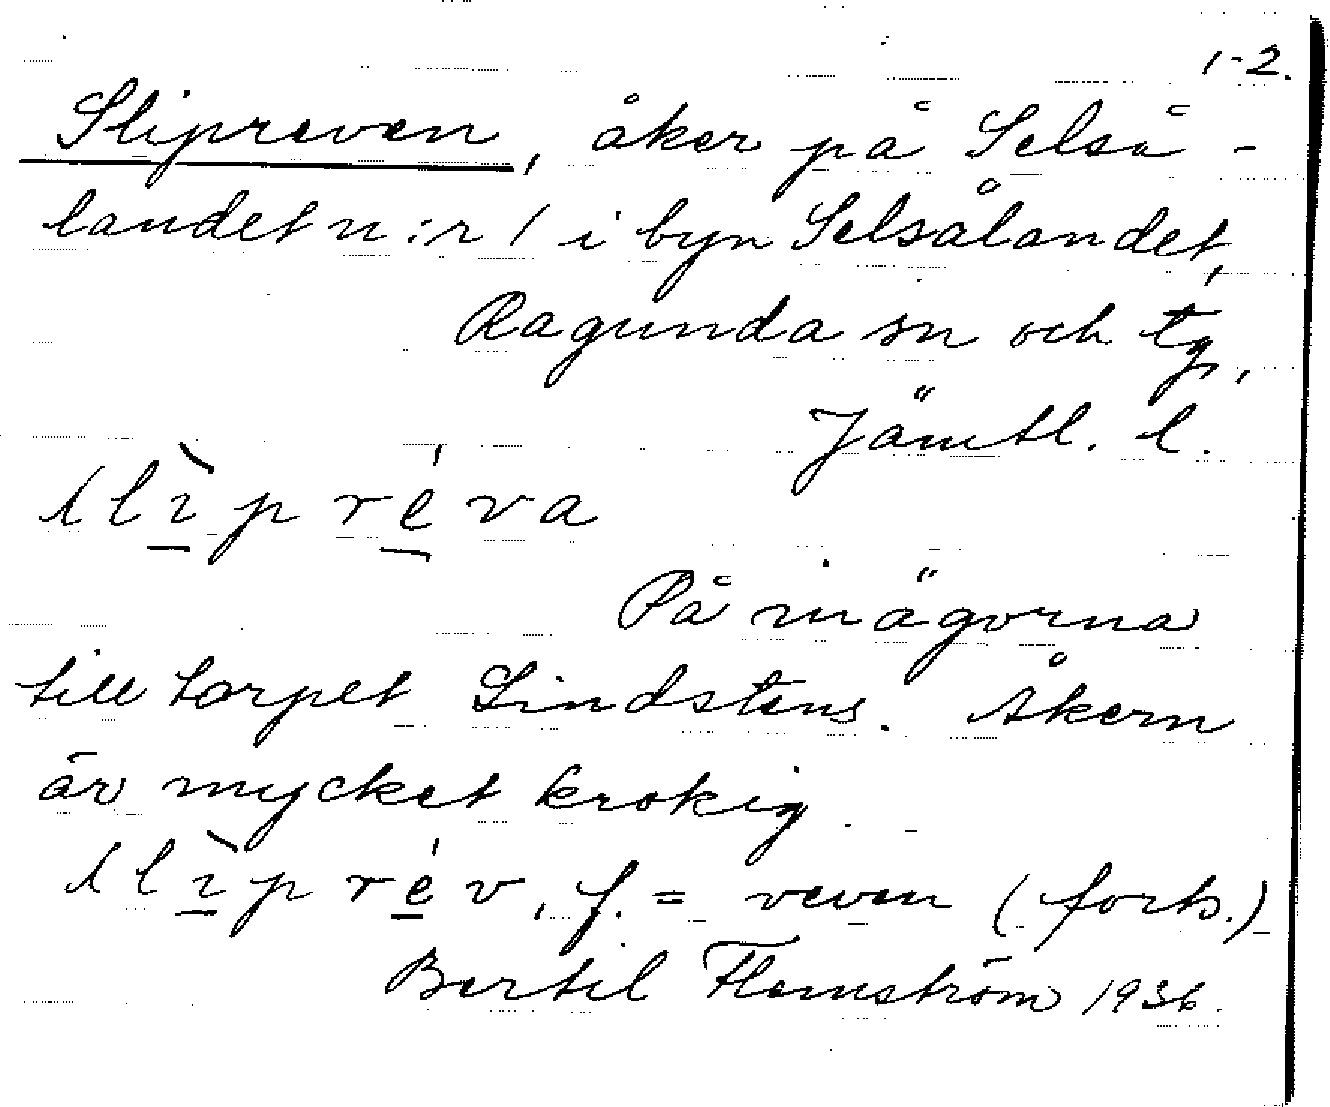 1-2.
Slipreven, åker på Selså-
landet n:r 1 i byn Selsålandet,
Ragunda sn och tg,
Jämtl. l.
slìpréva
På inägorna
till torpet Lindstens. Åkern
är mycket krokig.
slìprév, f. = veven (forts.)
Bertil Flemström 1936.